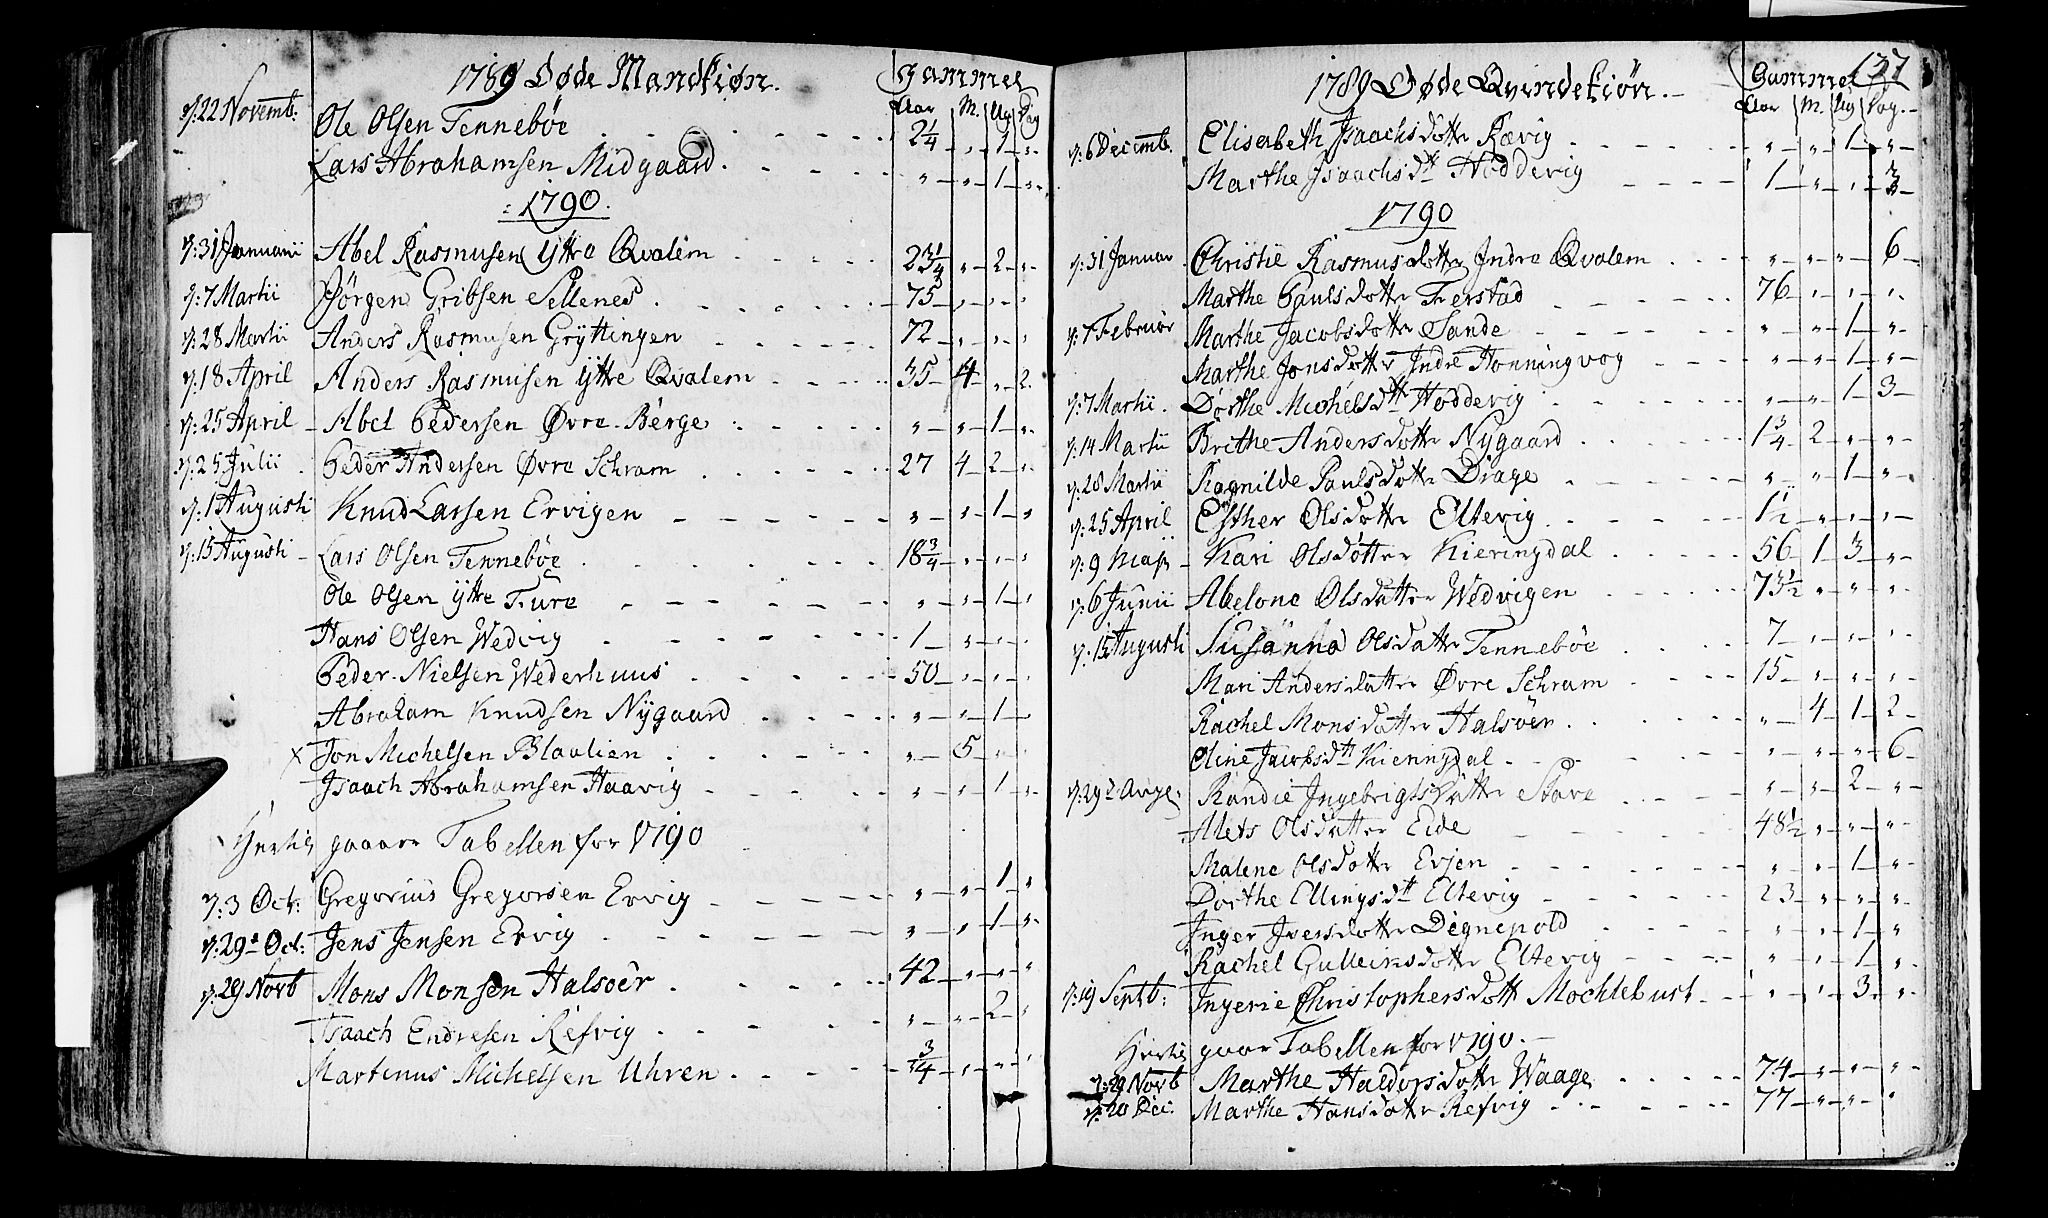 1789 Døde Mandkiøn.
Gammel
Aar M. Ug Dag
d: 22 Novemb: Ole Olsen Tenneböe 2 1/4 " 1 "
Lars Abrahamsen Midgaard. " " 1 "
1790.
d: 31 Januarii Abel Rasmusen Yttre Qvalem 23 1/4 " 2 "
d: 7 Martii Jörgen Gribsen Sellenes. 75 " " "
d: 28 Martii Anders Rasmusen Gryttingen 72 " " "
d: 18 April Anders Rasmusen Yttre Qvalem 35 4 " 2
d: 25 April Abel Pedersen Øvre Berge " " 1 "
d: 25 Julii Peder Andersen Øvre Schram 27 4 2 "
d: 1 Augusti Knud Larsen Ervigen " " 1 "
d: 15 Augusti Lars Olsen Tenneböe 18 3/4 " " "
Ole Olsen Yttre Fure " " 1 "
Hans Olsen Wedvig 1 " " "
Peder Nielsen Wederhuus 50 " " "
Abraham Knudsen Nygaard " " 1
x Jon Michelsen Blaalien " 5 " "
Isaach Abrahamsen Haavig " " 1 "
Hertig gaaer Tabellen for 1790
d: 3 Oct: Gregorius Gregorsen Ervig " " 1 "
d: 29 Oct: Jens Jensen Ervig " " 1 "
d: 29 Novb Mons Monsen Halsöer 42 " " "
Isaach Endresen Refvig " " 2 "
Martinus Michelsen Uhren 3/4 " " "
137
1789 Døde Qvindekiön.
Gammel
Aar M. Ug Dag
d: 6 Decemb. Elisabeth Isaachsdotter Rævig " " 1 "
Marthe Isaachsdtt Hodderig 1 " "
1790
d: 31 Januar Christie Rasmusdotter Indre Qvalem " " " 6
Marthe Paulsdotter Ferstad 76 " " "
d: 7 Februar Marthe Jacobsdotter Sande " " 1 "
Marthe Jonsdotter Indre Honningvog " " 1 "
d: 7 Martii. Dorthe Michelsdtt Hoddevig " " 1 3
d: 14 Martii Brethe Andersdotter Nygaard 1 3/4 2 " "
d: 28 Martii Ragnilde Paulsdotter Drage " " 1 "
d: 25 April Esther Olsdotter Eltevig 1 1/2 " " "
d: 9 Maji Kari Olsdotter Kieringdal 56 1 3 "
d: 6 Junii Abelone Olsdatter Wedvigen 73 1/2 " " "
d: 15 Augusti Susanna Olsdatter Tennebøe 7 " " "
Mari Andersdatter Øvre Schram 15 " " "
Rachel Monsdatter Halsöer " 4 1 2
Eline Jacobsdtt Kieringdal " " " 6
d: 29 Aug. Randie Ingebrigtsdatter Stave " " 2 "
Alets Olsdatter Eide 48 1/2 " " "
Malene Olsdotter Erjen " " 1 "
Dorthe Ellingsdtt Eltevig 23 " " "
Inger Iversdotter Degnepold " " 1 "
Rachel Gulleiksdotter Eltevig " " 1 "
d: 19 Septb: Ingerie Christophersdotter Mochlebust " " 3 "
Hertig gaar Tabellen for 1790.
d: 29 Novb Marthe Haldorsdotter Waage 74 " " "
d: 20 Dec: Marthe Hansdotter Refvig 77 " " "